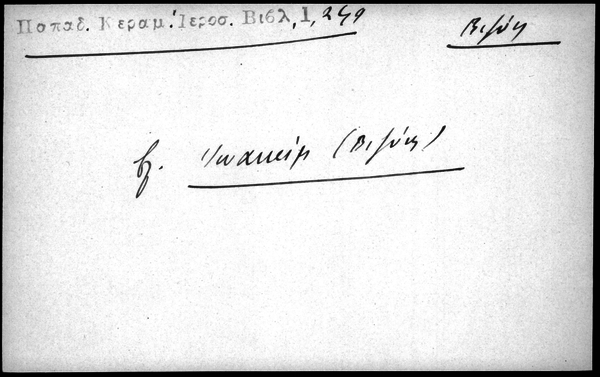 Παπαδ. Κεραμ. Ἱεροσ. Βιβλ, 1, 249
Βιζύη
βλ. Ἰωακείμ (Βιζύης)